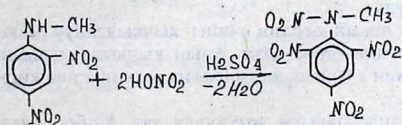 NH–CH3
NO2
NO2
+ 2HONO2
H2SO4
–2H2O
O2N–N–CH3
O2N
NO2
NO2